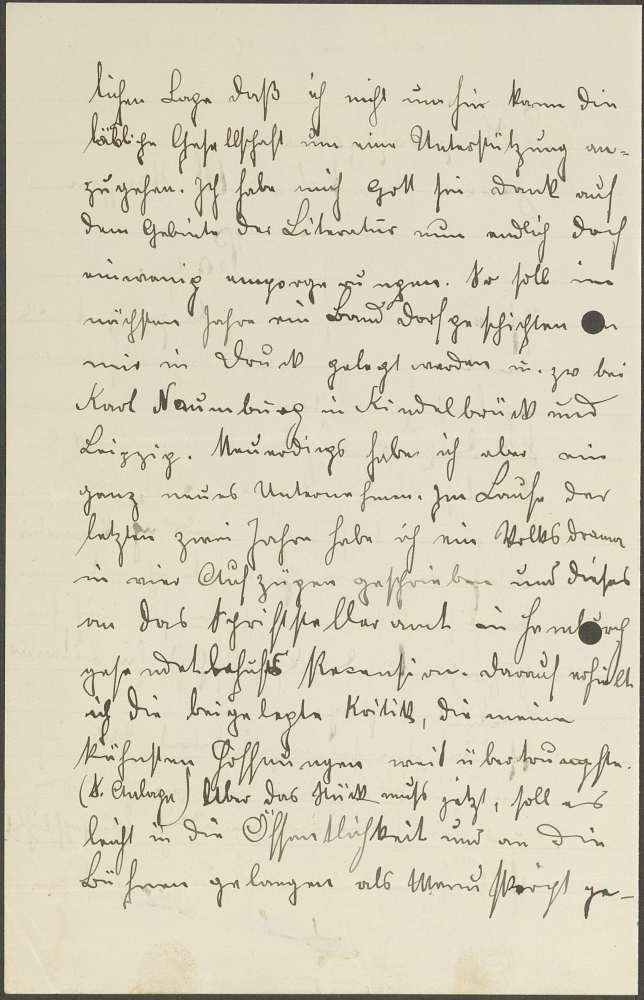 lichen Lage daß ich nicht umhin kann die
löbliche Gesellschaft um eine Unterstützung an-
zugehen. Ich habe mich Gott sei dank auf
dem Gebiete der Literatur nun endlich doch
ein wenig emporgerungen. Es soll im
nächsten Jahre ein Band Dorfgeschichten von
mir in Druck gelegt werden u. zw bei
Karl Naumburg in Kindelbrück und
Leipzig. Neuerdings habe ich aber ein
ganz neues Unternehmen. Im Laufe der
letzten zwei Jahre habe ich ein Volksdrama
in vier Aufzügen geschrieben und dieses
an das Schriftstelleramt in Hamburg
gesendet behufs Recension. Darauf erhielt
ich die beigelegte Kritik, die meine
kühnsten Hoffnungen weit übertrumpfte.
(S. Anlage) Aber das Stück muß jetzt, soll es
leicht in die Öffentlichkeit und an die
Bühnen gelangen als Manuskript ge-